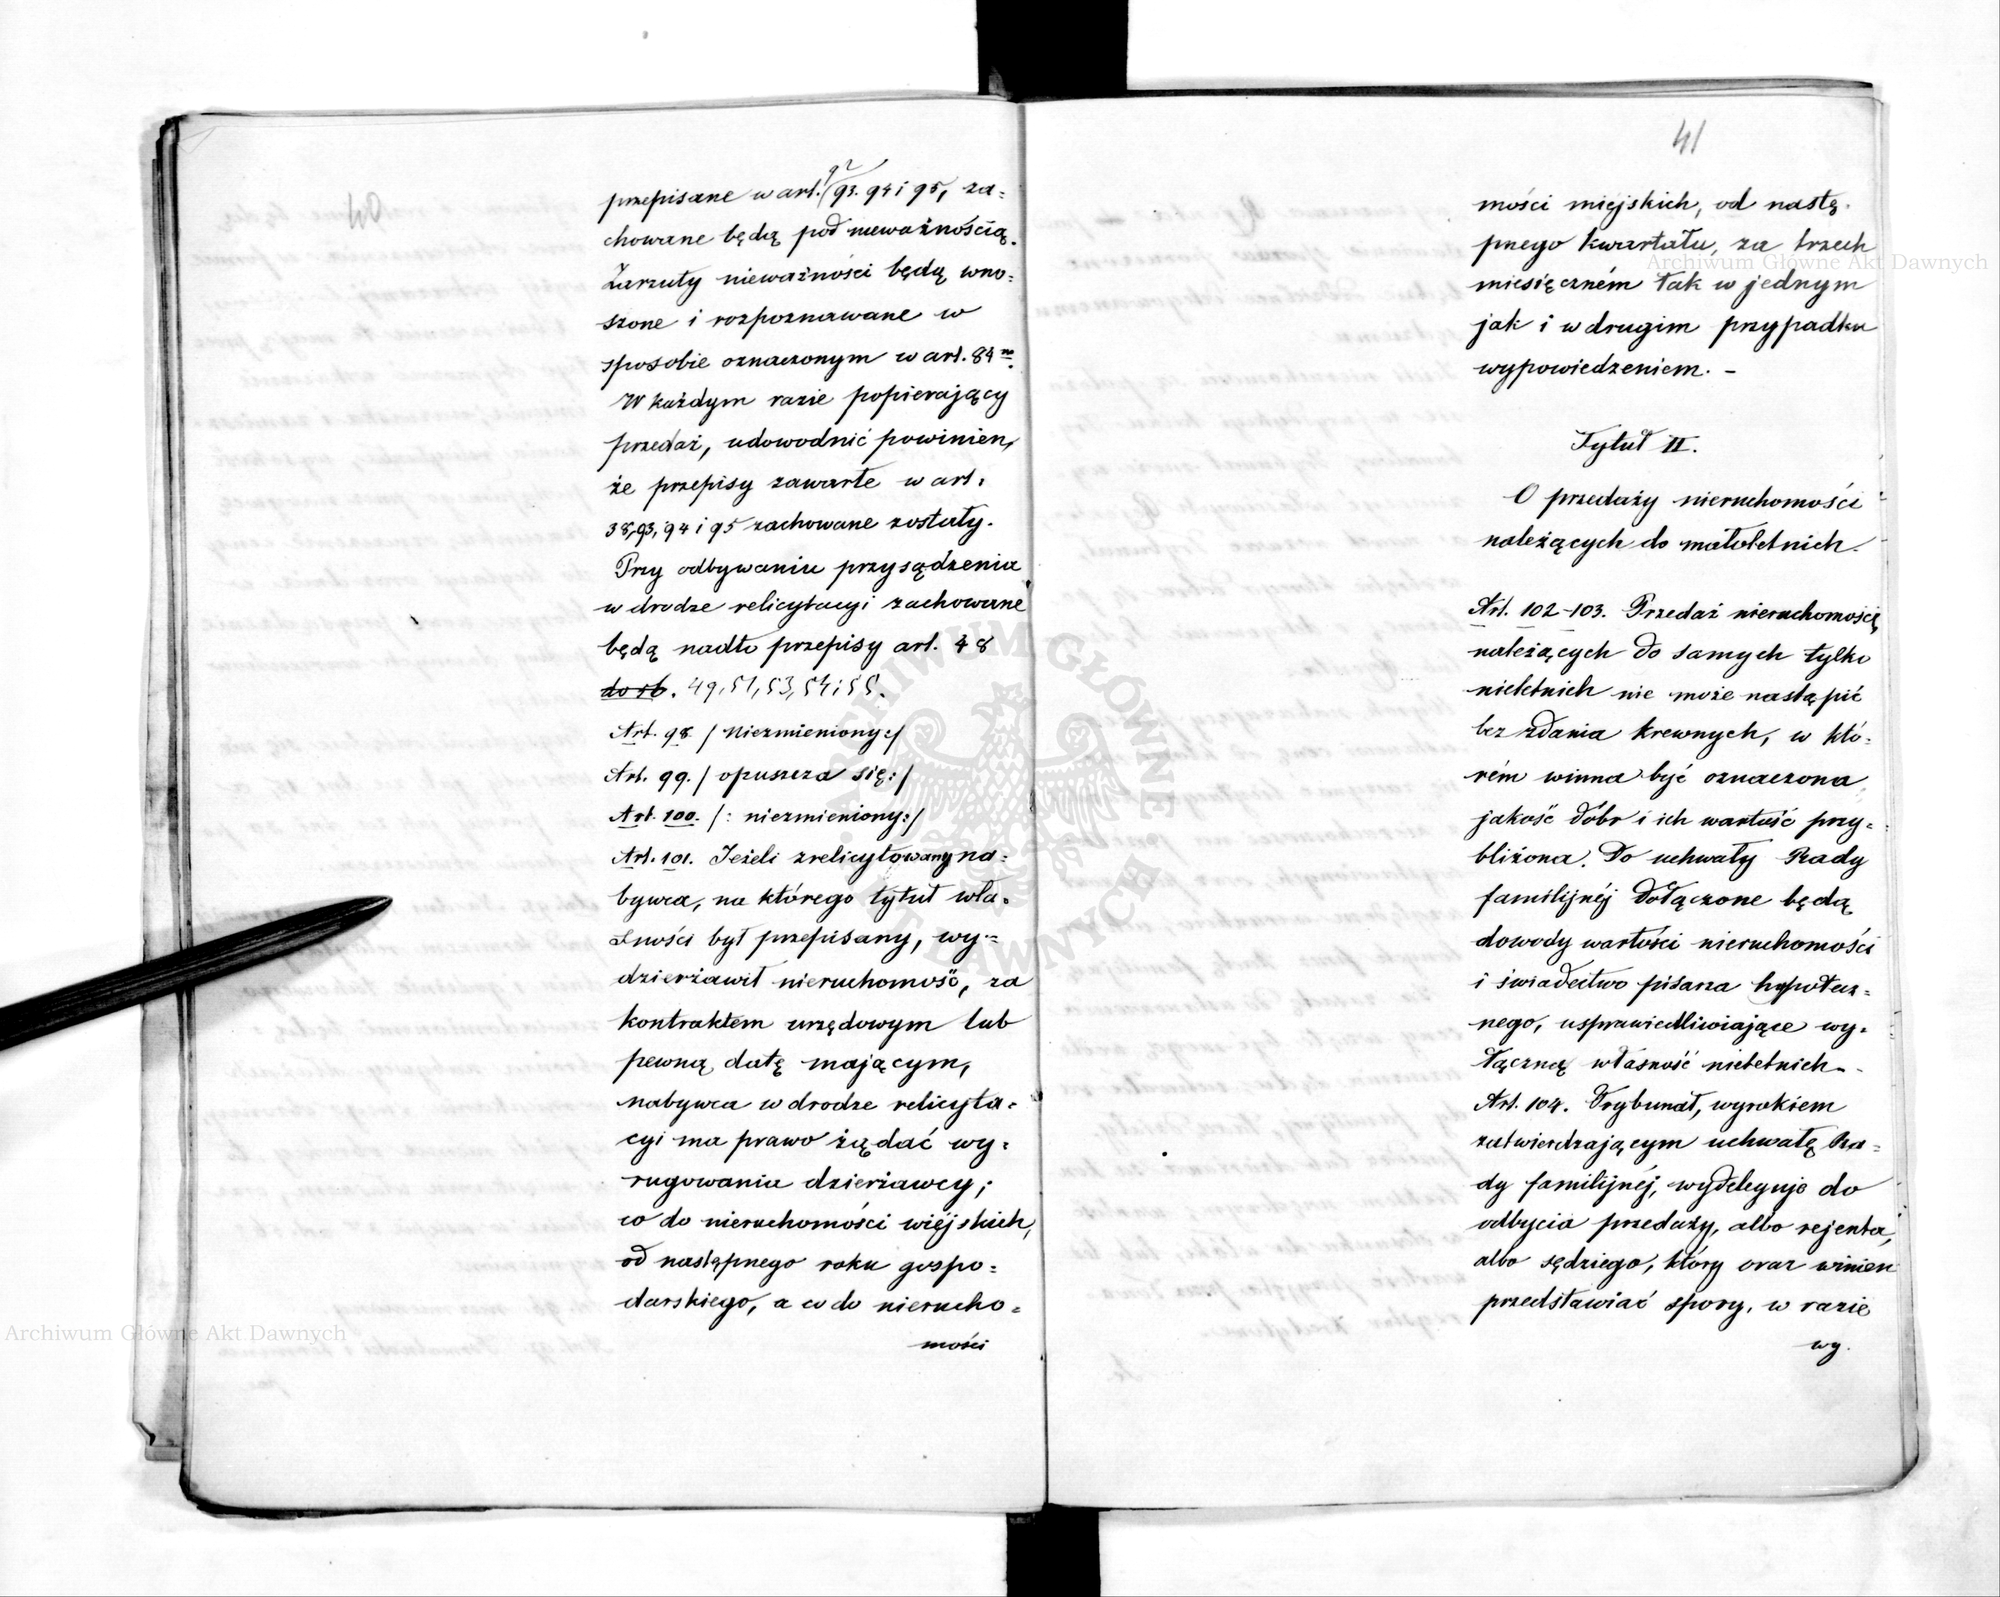 przepisane w art. 92 93. 94 i 95, za=
chowane będą pod nieważnością.
Zarzuty nieważności będą wno=
szone i rozpoznawane w
sposobie oznaczonym w art. 84 m.
W każdym razie popierający
przedaż, udowodnić powinien,
że przepisy zawarte w art.
38, 93, 94 i 95 zachowane zostały.
Przy odbywaniu przysądzenia
w drodze relicytacyi zachowane
będą nadto przepisy art. 48
do 56. 49, 51, 53, 54 i 55.
Art. 98. /niezmieniony:/
Art. 99. / opuszcza się:/
Art. 100. /: niezmieniony:/
Art. 101. Jeżeli zrelicytowany na=
bywca, na którego tytuł wła=
sności był przepisany, wy=
dzierżawił nieruchomość, za
kontraktem urzędowym lub
pewną datę mającym,
nabywca w drodze relicyta=
cyi ma prawo żądać wy=
rugowania dzierżawcy;
co do nieruchomości wiejskich,
od następnego roku gospo=
darskiego, a co do nierucho=
mości
41
mości miejskich, od nastę=
pnego kwartału, za trzech
miesięczném tak w jednym
jak i w drugim przypadku
wypowiedzeniem. –
Tytuł II.
O przedaży nieruchomości
należących do małoletnich.
Art. 102–103. Przedaż nieruchomości,
należących do samych tylko
nieletnich nie może nastąpić
bez zdania krewnych, w któ=
rém winna być oznaczona
jakość dóbr i ich wartość przy=
bliżona. Do uchwały Rady
familijnéj dołączone będą
dowody wartości nieruchomości
i świadectwo pisarza hypotecz=
nego, usprawiedliwiające wy=
łączną własność nieletnich.
Art. 104. Trybunał, wyrokiem
zatwierdzającym uchwałę Ra=
dy familijnéj, wydeleguje do
odbycia przedaży, albo rejenta,
albo sędziego, który oraz winien
przedstawiać spory, w razie
wy.
40
Archiwum Główne Akt Dawnych
Archiwum Główne Akt Dawnych
ARCHIWUM GŁÓWNE AKT DAWNYCH